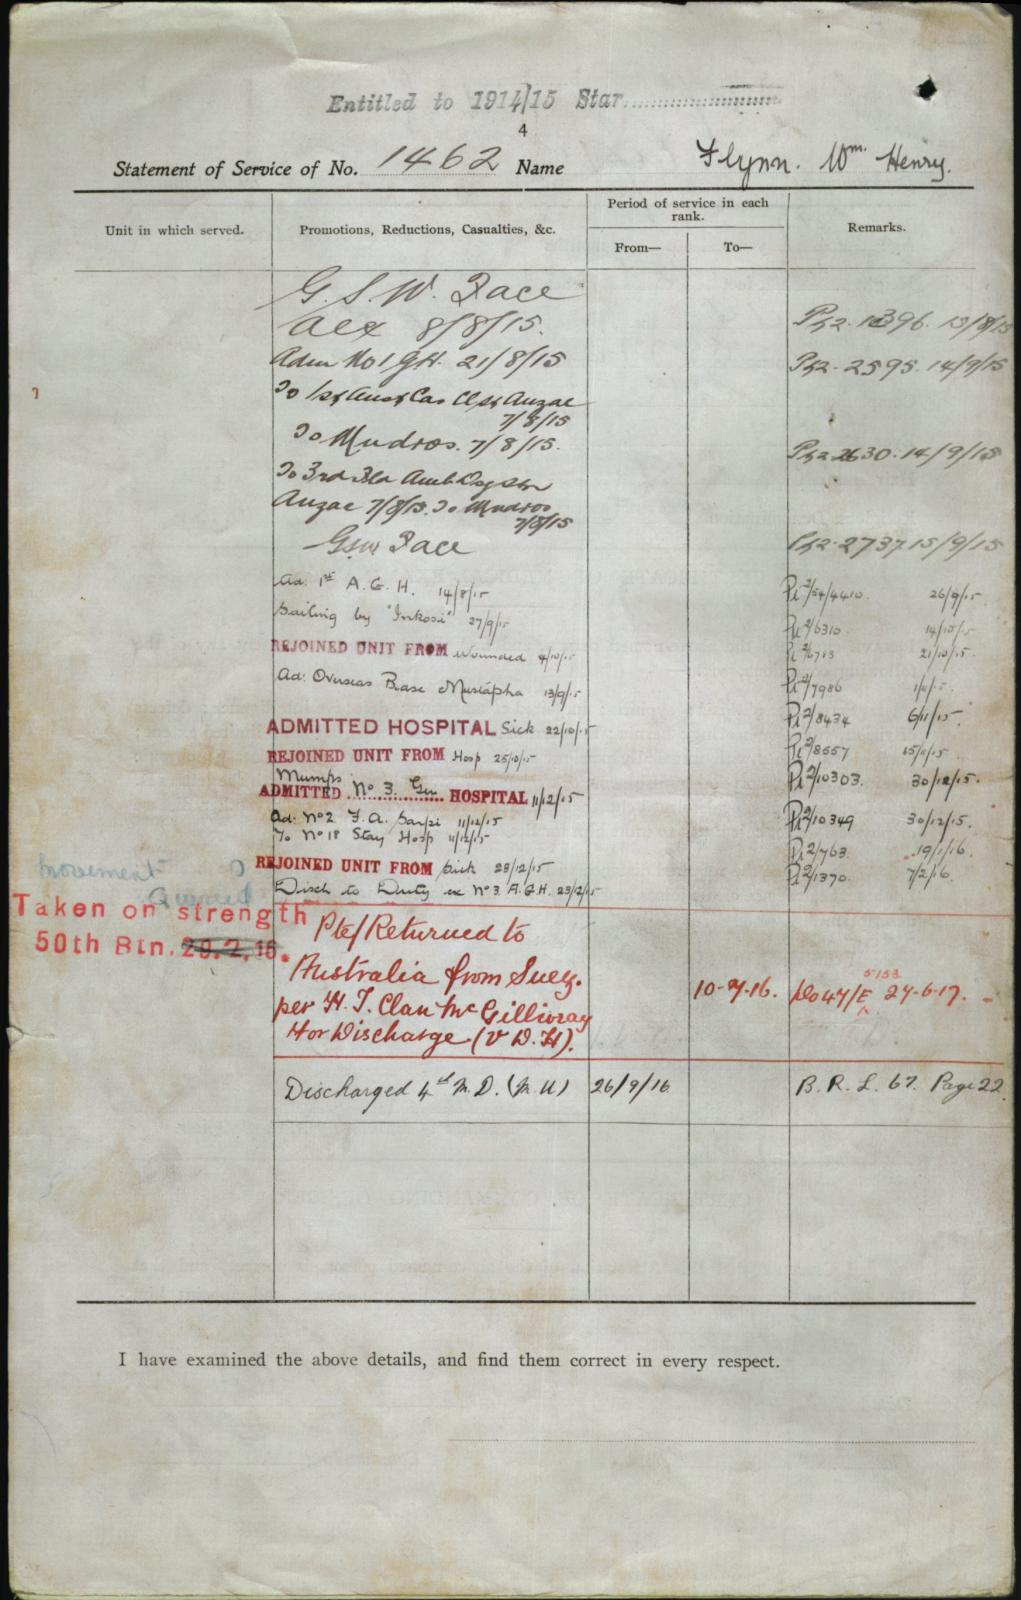 Entitled to 1914/15 Star
4
Statement of Service of No. 1462 Name Flynn. Wm. Henry.
Unit in which served.
Promotions, Reductions, Casualties, &c.
Period of service in each rank.
From—
To—
Remarks.
G. S. W. Face
Alex 8/8/15. 15/8/15
Adm No 1 G.H. 21/8/15 2595. 14/9/15
To 1st Aust Cas Cl St Anzac
7/8/15
To Mudros. 7/8/15. 2630. 14/9/15
To 3rd Fld Amb
Anzac 7/8/15. To Mudros
7/8/15
Gsw Face 2737 15/9/15
Ad: 1st A. G. H. 14/8/15 4410. 26/9/15
Sailing by "Inkosi" 27/9/15 2/6310
REJOINED UNIT FROM Wounded 4/10/15 21/10/15.
Ad: Overseas Base Mustapha 13/9/15 2/7986
ADMITTED HOSPITAL Sick 22/10/15 2/8434 6/11/15.
REJOINED UNIT FROM Hosp 25/10/15 2/8557 15/11/15
Mumps
ADMITTED No 3. Gen HOSPITAL 11/12/15 2/10303. 30/12/15.
Ad: No 2 F. A. Sarpi 11/12/15 2/10349 30/12/15.
To No 18 Stay Hosp 11/12/15 2/763. 19/1/16.
REJOINED UNIT FROM Sick 23/12/15 2/1370. 7/2/16.
Disch to Duty ex No 3. A.G.H. 23/12/15
Movement
Taken on strength
50th Btn. 29.2.16.
Pte/Returned to
Australia from Suez.
per H. T. Clan McGillivray
for Discharge (V. D. H). 10-7-16. Do 47/E 5153 27-6-17.
Discharged 4th M. D. (M. U) 26/9/16 B. R. L. 67. Page 22
I have examined the above details, and find them correct in every respect.